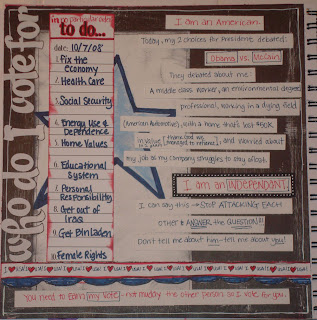 who do I vote for
in no particular order
to do...
date: 10/7/08
1. Fix the
Economy
2. Health Care
3. Social Security
4. Energy Use &
Dependence
5. Home Values
6. Educational
System
7. Personal
Responsibility
8. Get out of
Iraq
9. Get BinLaden
10. Female Rights
I am an American.
Today, my 2 choices for President debated:
Obama vs. McCain
They debated about me:
A middle class worker, an environmental degreed
professional, working in a dying field
(American Automotive), with a home that's lost $50K
in value
[thank God we managed to refinance]
and worried about
my job as my company struggles to stay afloat.
I am an INDEPENDANT
I can say this → STOP ATTACKING EACH
OTHER & ANSWER the QUESTION!!!
Don't tell me about him - tell me about you!
You need to Earn my vote - not muddy the other person so I vote for you.